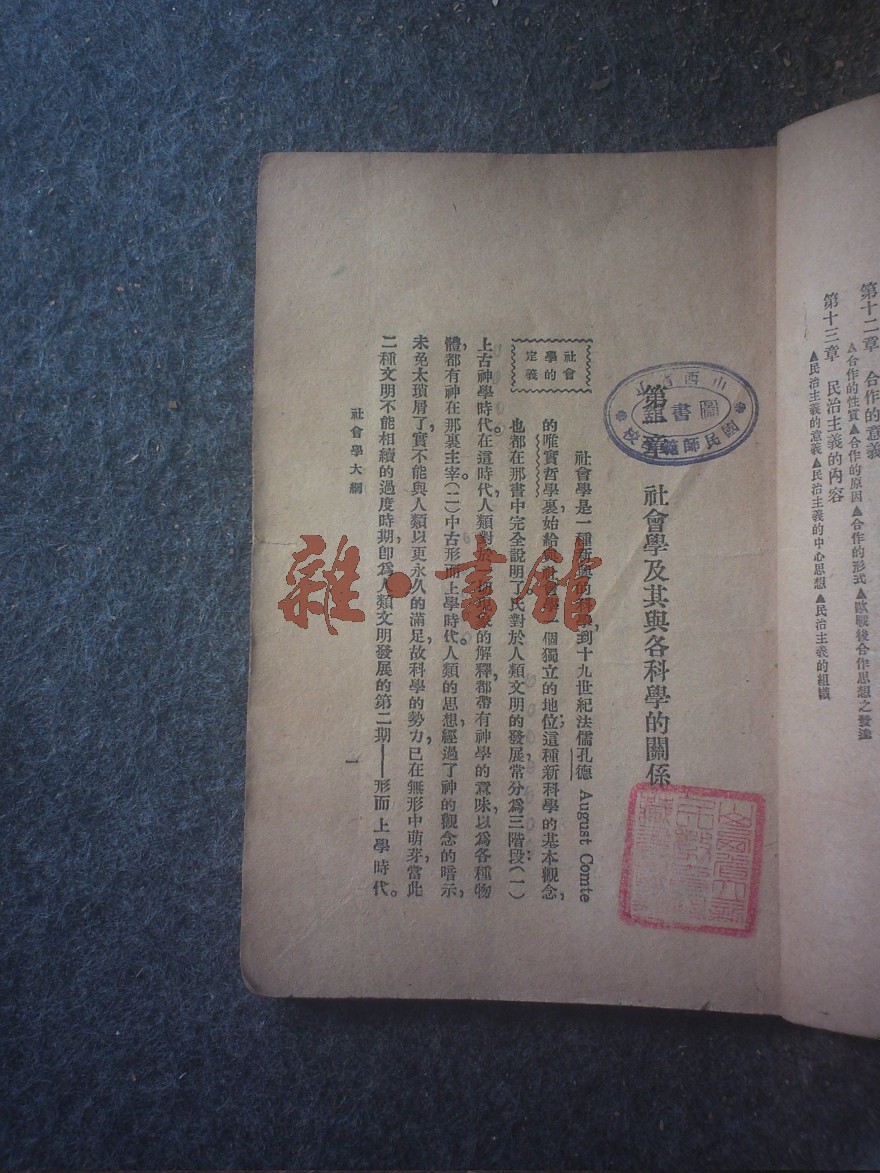 第十二章 合作的意義
▲合作的性質▲合作的原因▲合作的形式▲歐戰後合作思想之發達
第十三章 民治主義的內容
▲民治主義的意義▲民治主義的中心思想▲民治主義的組織
第一章 社會學及其與各科學的關係
山西省立
國民師範學校
圖書
社會
學的
定義
社會學是一種新興的科學,到十九世紀法儒孔德 August Comte
的唯實哲學裏始給與社會學一個獨立的地位;這種新科學的基本觀念,
也都在那書中完全說明了。氏對於人類文明的發展,常分爲三階段:(一)
上古神學時代。在這時代,人類對於一切現象的解釋,都帶有神學的意味,以爲各種物
體,都有神在那裏主宰。(二)中古形而上學時代。人類的思想經過了神的觀念的暗示,
未免太瑣屑了,實不能與人類以更永久的滿足,故科學的勢力,已在無形中萌芽,當此
二種文明不能相續的過度時期,即爲人類文明發展的第二期——形而上學時代。
社會學大綱
一
雜·書館